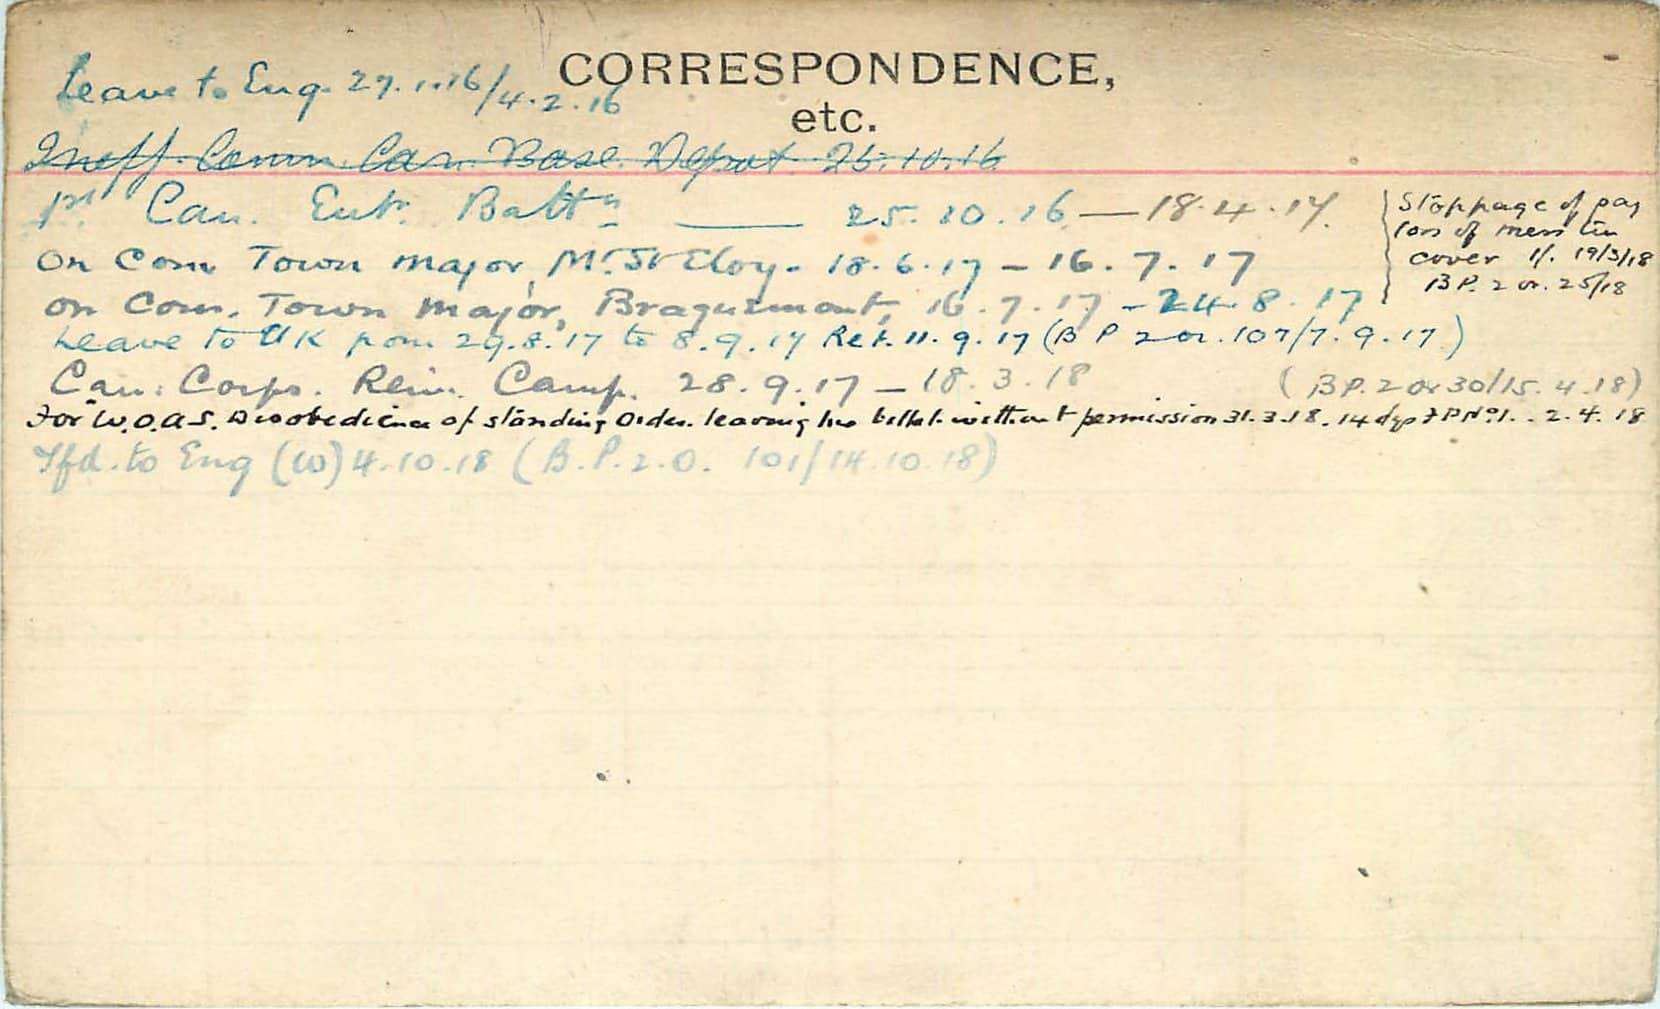 CORRESPONDENCE,
etc.
Leave to Eng. 27.1.16/4.2.16
Ineff. Comm. Can. Base. Depot. 26.10.16
1st Can. Entr. Battn — 25.10.16 — 18.4.17.
On Com Town Major, Mt. St Eloy. 18.6.17 — 16.7.17
On Com. Town Major, Braquemont, 16.7.17 — 24.8.17
Leave to UK from 29.8.17 to 8.9.17 Ret. 11.9.17 (B P 2 or. 107/7.9.17)
Stoppage of pay
loss of mess tin
cover 1/. 19/3/18
B.P. 2 or. 25/18
Can: Corps. Rein. Camp. 28.9.17 — 18.3.18
(BP. 2 or 30/15.4.18)
For W.O.A.S. Disobedience of standing Order. leaving his billet without permission 31.3.18. 14 dys F P No 1. . 2.4.18
Tfd. to Eng (W) 4.10.18 (B.P.2.O. 101/14.10.18)